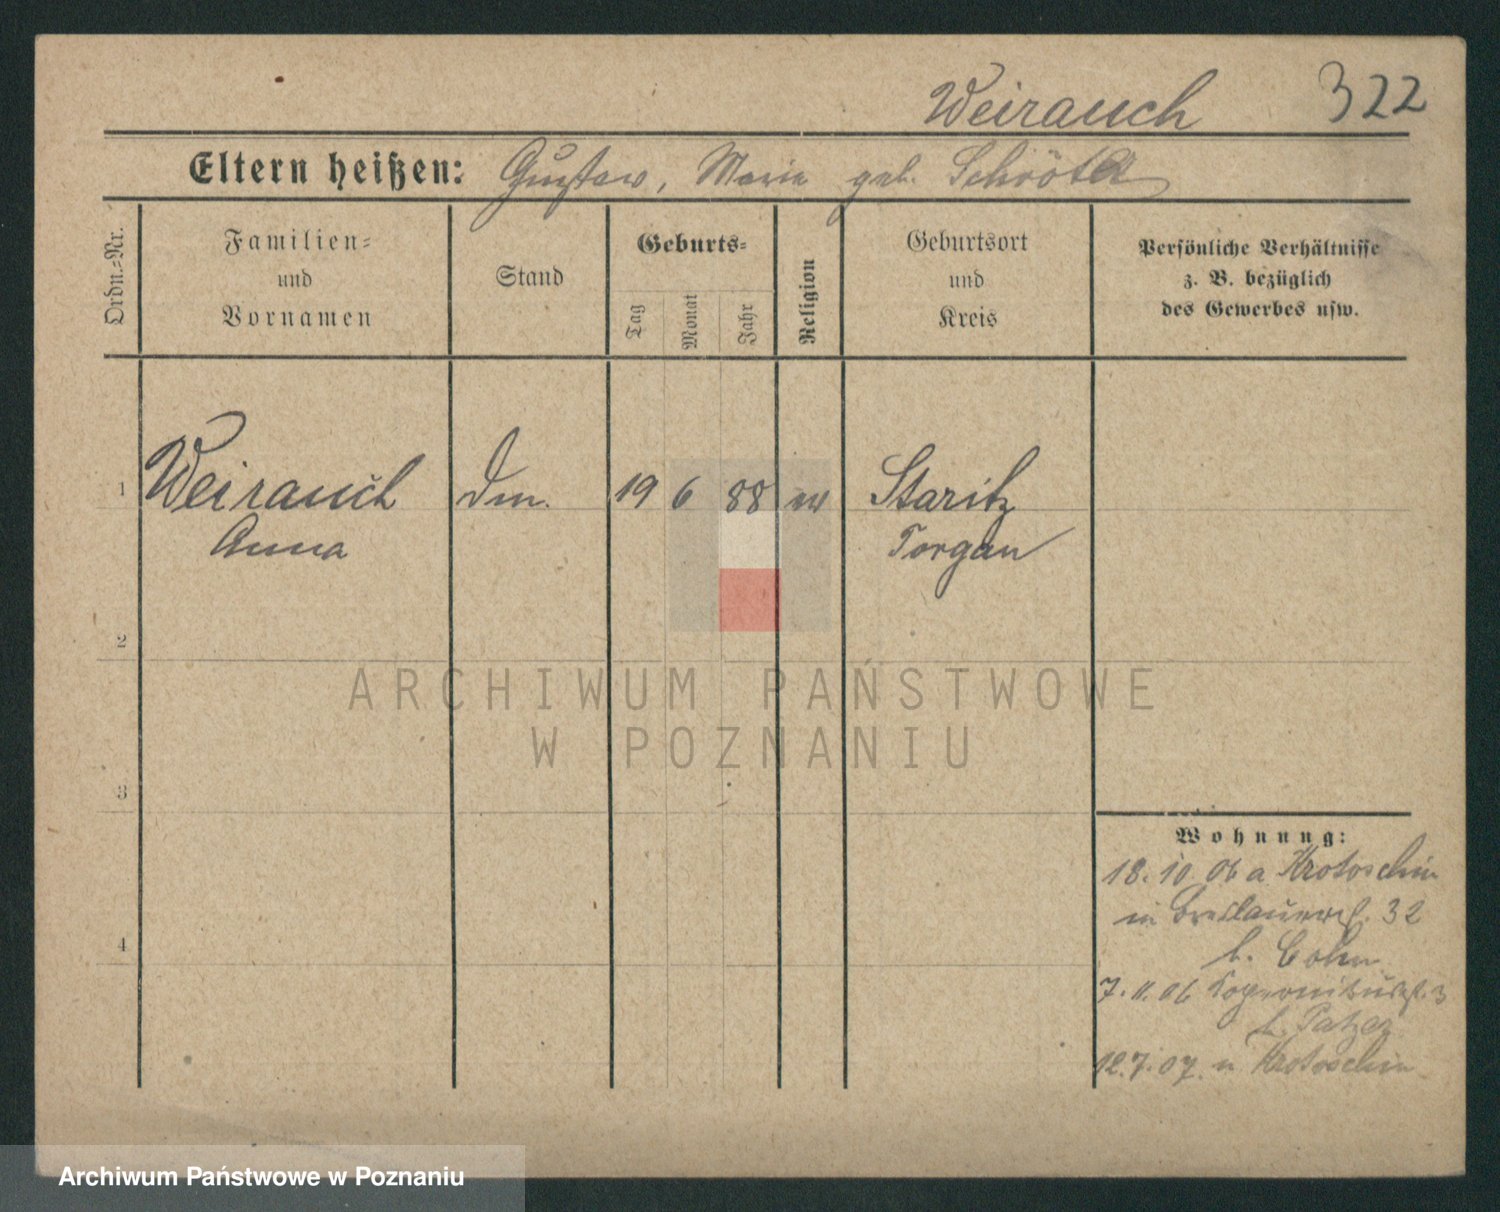 Weirauch 322
Eltern heißen: Gustav, Marie geb. Schröter
Ordn.-Nr.
Familien-
und
Vornamen
Stand
Geburts-
Tag
Monat
Jahr
Religion
Geburtsort
und
Kreis
Persönliche Verhältnisse
z. B. bezüglich
des Gewerbes usw.
1 Weirauch Dm. 19 6 88 ev Staritz
Anna Torgau
2
ARCHIWUM PAŃSTWOWE
W POZNANIU
3
Wohnung:
18. 10. 06 a Krotoschin
in Breslauerst. 32
b. Cohn
4
7. 11. 06 Kopernikusst. 3
b. Patzer
12. 7. 07. n Krotoschin
Archiwum Państwowe w Poznaniu